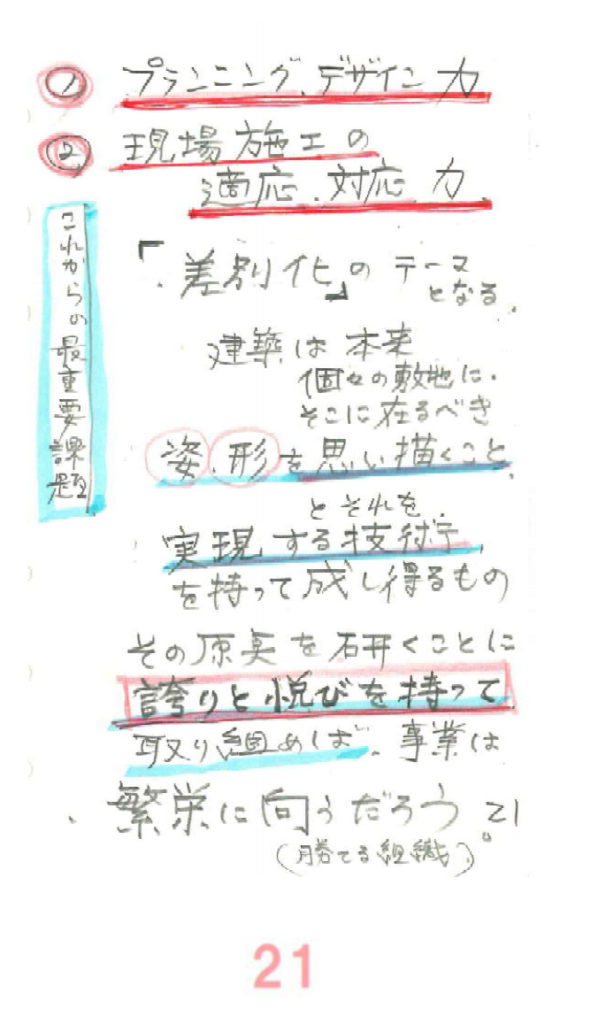 ① プランニング、デザイン力
② 現場施工の
適応、対応力
これからの最重要課題
「差別化」の テーマ
となる
建築は 本来
個々の敷地に、
そこに在るべき
姿、形を思い描くこと
とそれを、
実現する技術
を持って成し得るもの
その原点を研くことに
誇りと悦びを持って
取り組めば、事業は
繁栄に向うだろう
(勝てる組織)。
21
21